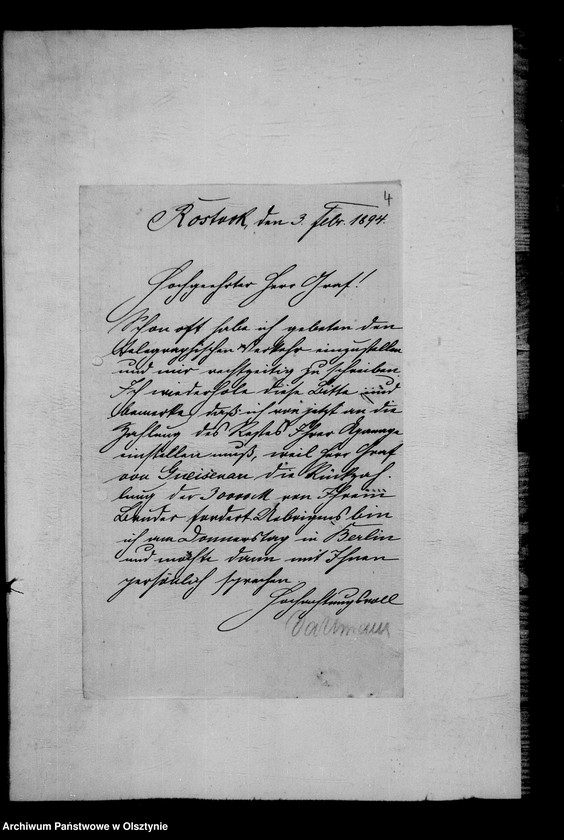 4
Rostock, den 3. Febr. 1894.
Hochgeehrter Herr Graf!
Schon oft habe ich gebeten den
telegraphischen Verkehr einzustellen
und mir rechtzeitig zu schreiben
Ich wiederhole diese Bitte und
bemerke, daß ich von jetzt an die
Zahlung des Restes Ihrer Apanage
einstellen muß, weil Herr Graf
von Gneisenau die Rückzah-
lung der 30000 M von Ihrem
Bruder fordert Uebrigens bin
ich am Donnerstag in Berlin
und möchte dann mit Ihnen
persönlich sprechen
Hochachtungsvoll
Archiwum Państwowe w Olsztynie